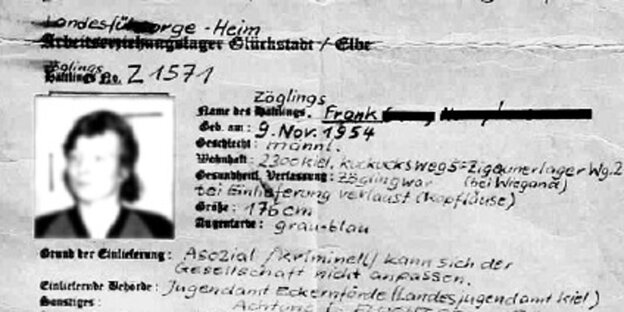 Landesfürsorge-Heim
Arbeitserziehungslager Glückstadt / Elbe
Zöglings
Häftlings No. Z 1571
Zöglings
Name des Häftlings. Frank
Geb. am: 9. Nov. 1954
Geschlecht: männl.
Wohnhaft: 2300 Kiel, Kuckucksweg 5 = Zigeunerlager Wg. 2
Gesundheitl. Verfassung: Zögling war (bei Wiegand)
bei Einlieferung verlaust (Kopfläuse)
Größe: 176 cm
Augenfarbe: grau-blau
Grund der Einlieferung: Asozial / kriminell / kann sich der
Gesellschaft nicht anpassen.
Einliefernde Behörde: Jugendamt Eckernförde (Landesjugendamt Kiel)
Sonstiges: Achtung